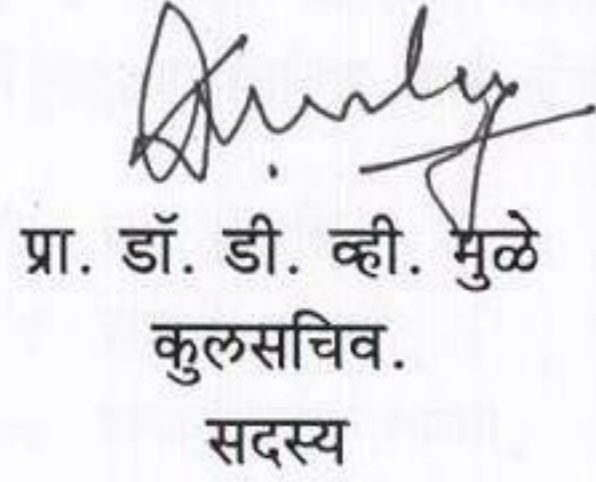 प्रा. डॉ. डी. व्ही. मुळे
कुलसचिव.
सदस्य